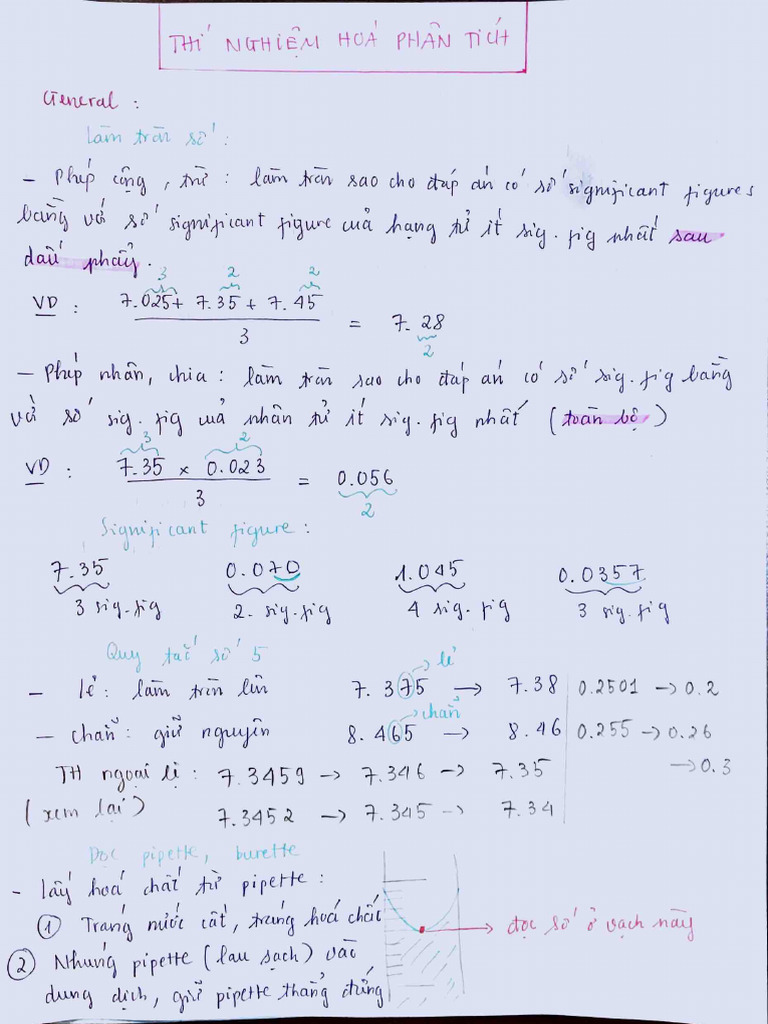 THÍ NGHIỆM HOÁ PHÂN TÍCH
General :
Làm tròn số :
- Phép cộng, trừ : làm tròn sao cho đáp án có số significant figures
bằng với số significant figure của hạng tử ít sig. fig nhất sau
dấu phẩy.
3 2 2
VD : 7.025 + 7.35 + 7.45
3
= 7.28
2
- Phép nhân, chia : làm tròn sao cho đáp án có số sig. fig bằng
với số sig. fig của nhân tử ít sig. fig nhất (toàn bộ)
3 2
VD : 7.35 x 0.023
3
= 0.056
2
Significant figure :
7.35 0.070 1.045 0.0357
3 sig. fig 2. sig. fig 4 sig. fig 3 sig. fig
Quy tắc số 5
lẻ
- lẻ : làm tròn lên 7.375 → 7.38 0.2501 → 0.2
chẵn
- chẵn : giữ nguyên 8.465 → 8.46 0.255 → 0.26
→ 0.3
TH ngoại lệ : 7.3459 → 7.346 → 7.35
(xem lại) 7.3452 → 7.345 → 7.34
Đọc pipette, burette
- lấy hoá chất từ pipette :
① Tráng nước cất, tráng hoá chất
→ đọc số ở vạch này
② Nhúng pipette (lau sạch) vào
dung dịch, giữ pipette thẳng đứng